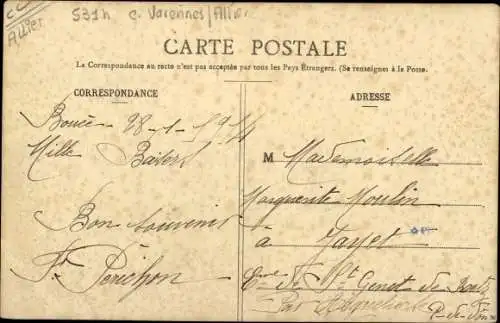 Allier
531h c. Varennes/Allier
CARTE POSTALE
La Correspondance au recto n'est pas acceptée par tous les Pays Étrangers. (Se renseigner à la Poste.
CORRESPONDANCE
ADRESSE
Boucé 28-1-1914
Mille Baisers
Bon souvenir
Périchon
M Mademoiselle
Marguerite Moulin
à Jayet
Cne de St Genest de Retz
Par Aigueperse
P-de-Dôme